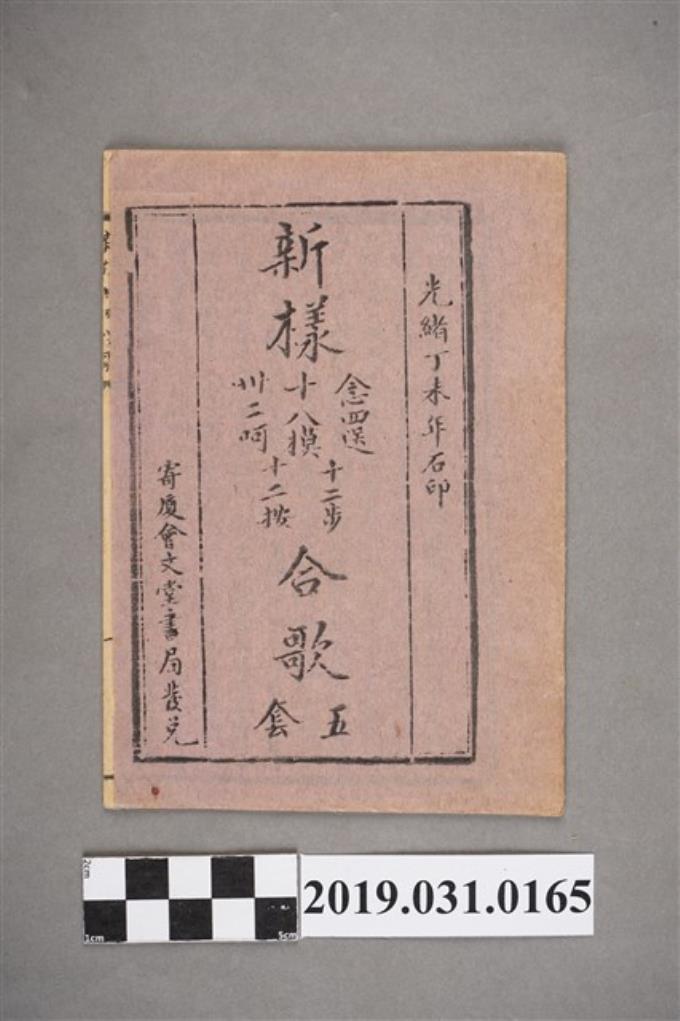 光緒丁未年石印
新樣
念四送
十二步
十八摸
十二按
卅二呵
合歌
五套
寄廈會文堂書局發兌
2cm
1cm
5cm
2019.031.0165